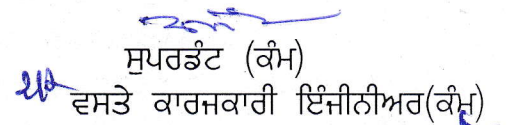 ਸੁਪਰਡੰਟ (ਕੰਮ)
ਵਸਤੇ ਕਾਰਜਕਾਰੀ ਇੰਜੀਨੀਅਰ(ਕੰਮ)